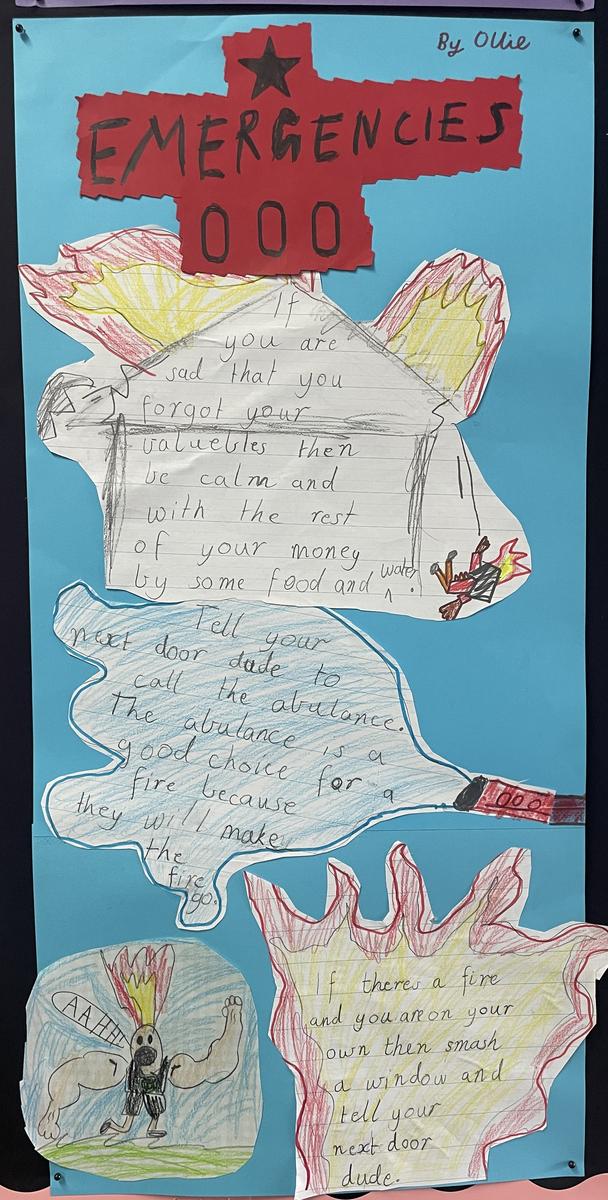 By Ollie
EMERGENCIES
000
If
you are
sad that you
forgot your
valuebles then
be calm and
with the rest
of your money
by some food and water.
Tell your
next door dude to
call the abulance.
The abulance is a
good choice for a
fire because
they will make
the
fire
go.
000
AAHHH
If theres a fire
and you are on your
own then smash
a window and
tell your
next door
dude.